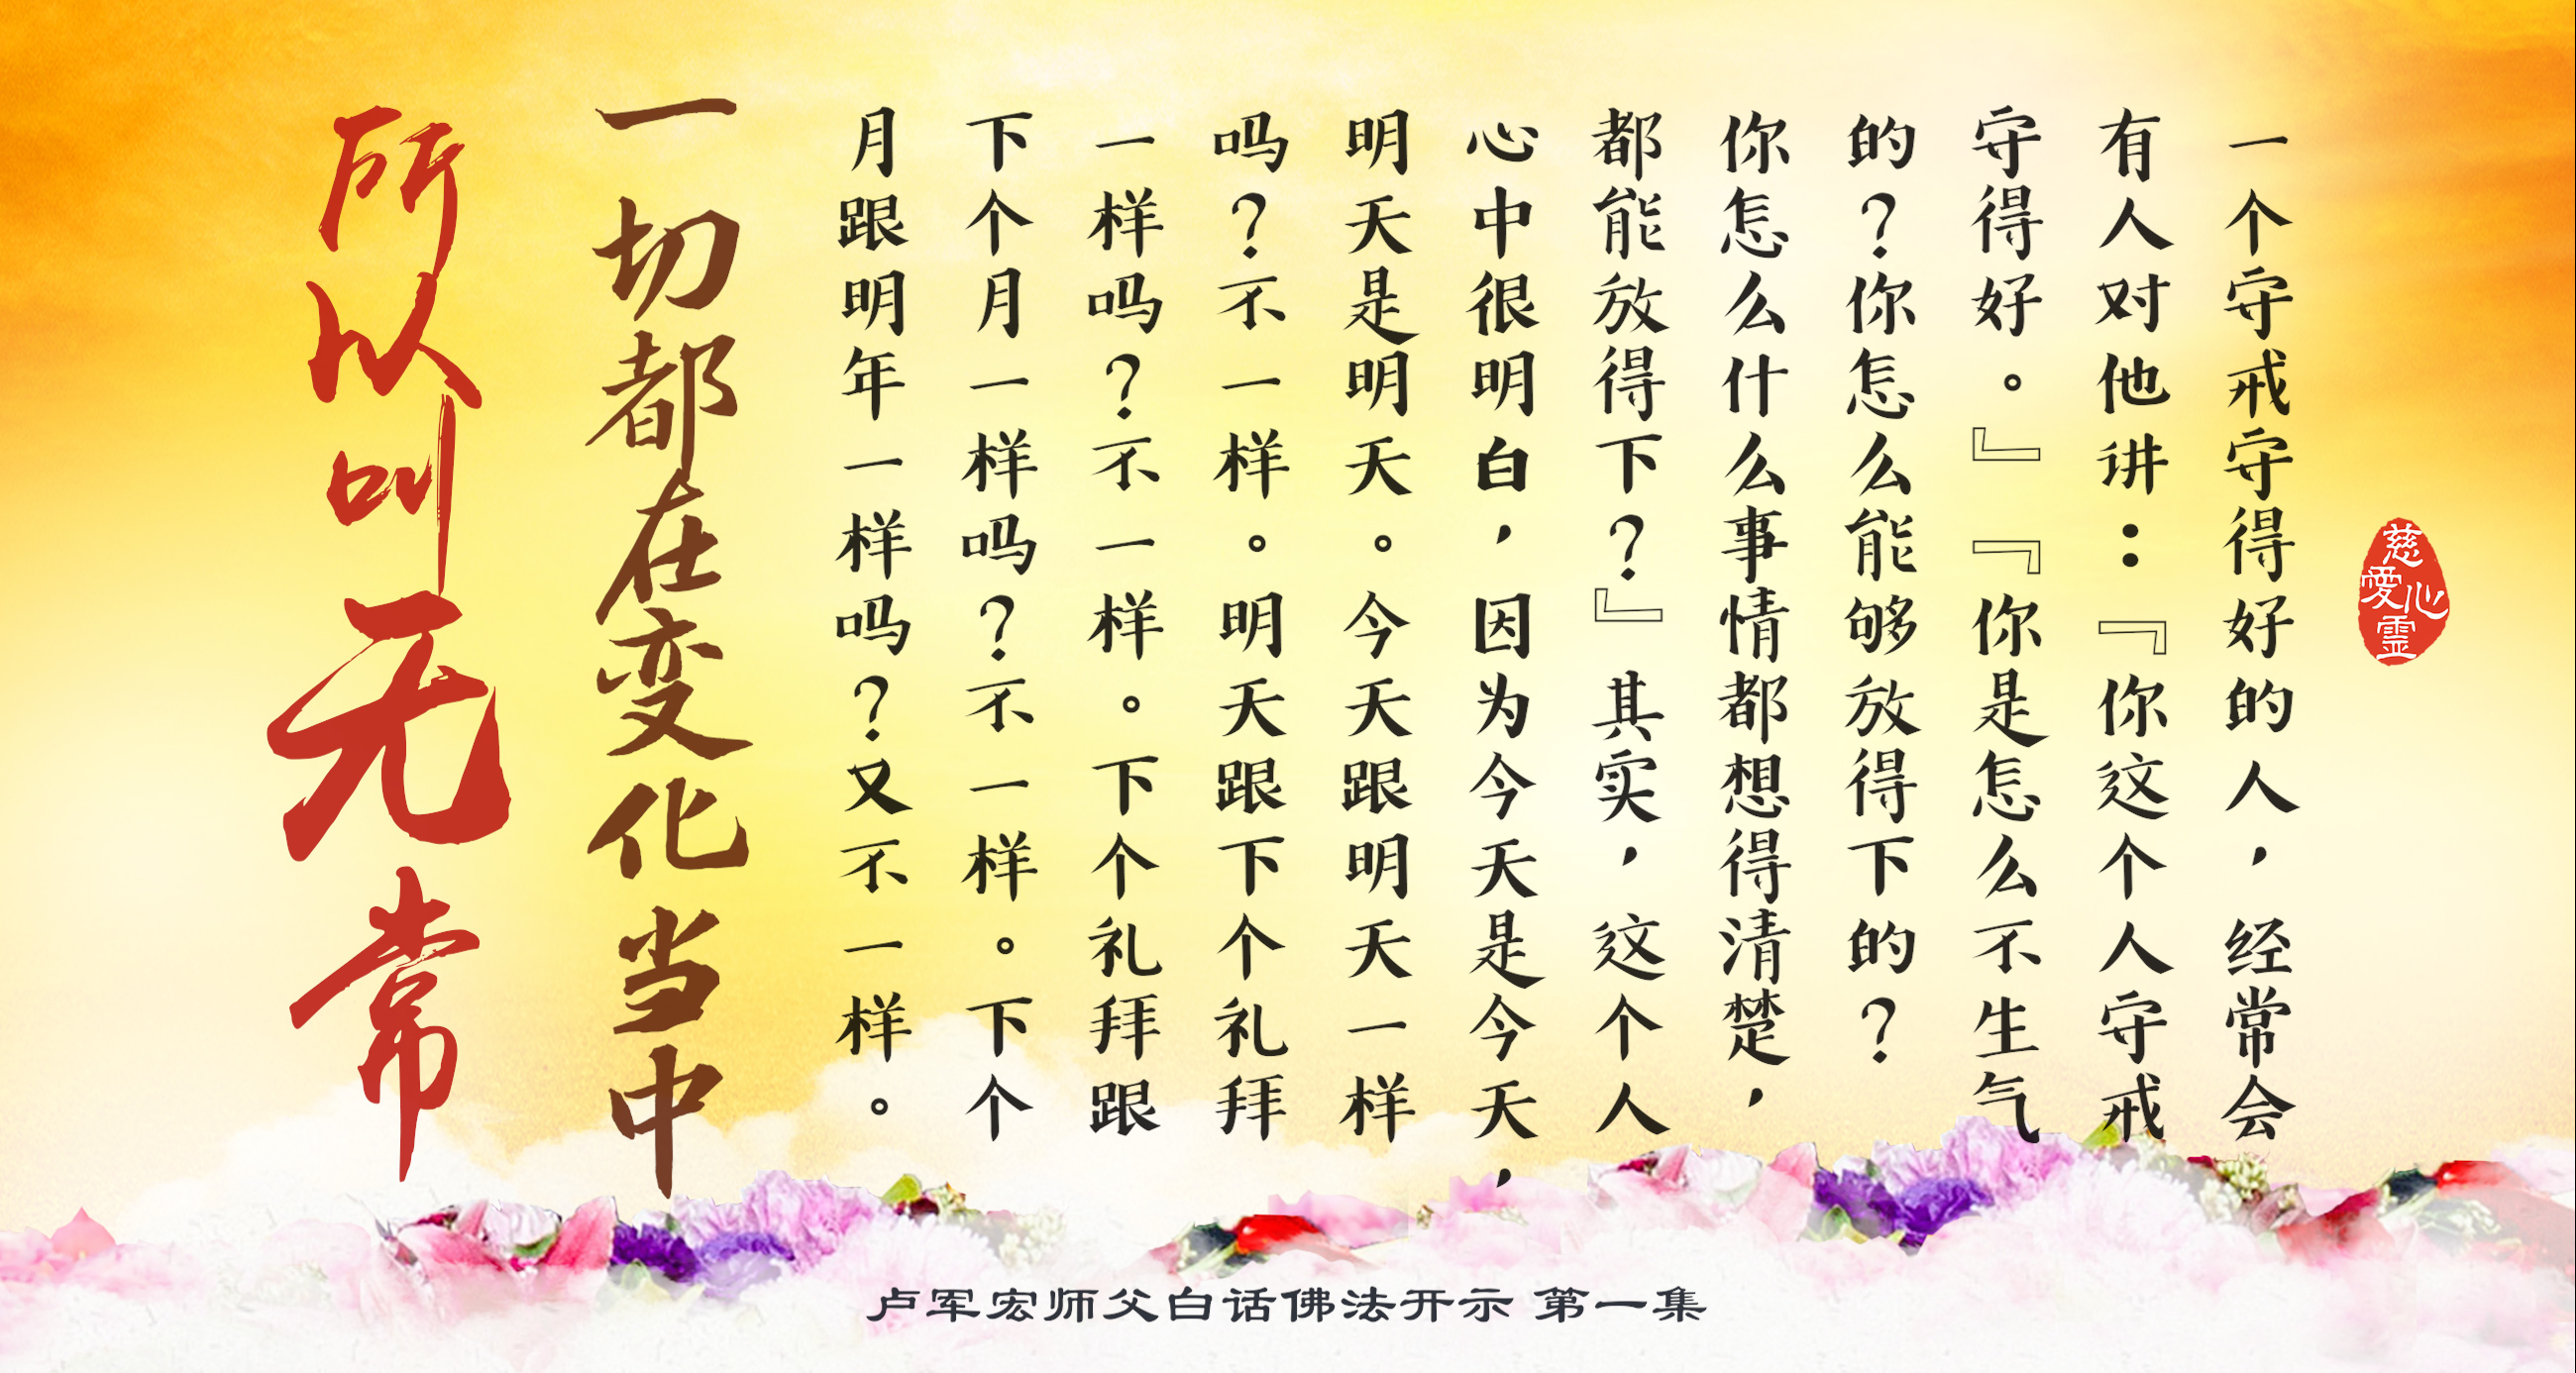 一个守戒守得好的人，经常会
有人对他讲：『你这个人守戒
守得好。』『你是怎么不生气
的？你怎么能够放得下的？
你怎么什么事情都想得清楚，
都能放得下？』其实，这个人
心中很明白，因为今天是今天，
明天是明天。今天跟明天一样
吗？不一样。明天跟下个礼拜
一样吗？不一样。下个礼拜跟
下个月一样吗？不一样。下个
月跟明年一样吗？又不一样。
一切都在变化当中
所以叫无常
慈
愛心
霊
卢军宏师父白话佛法开示 第一集